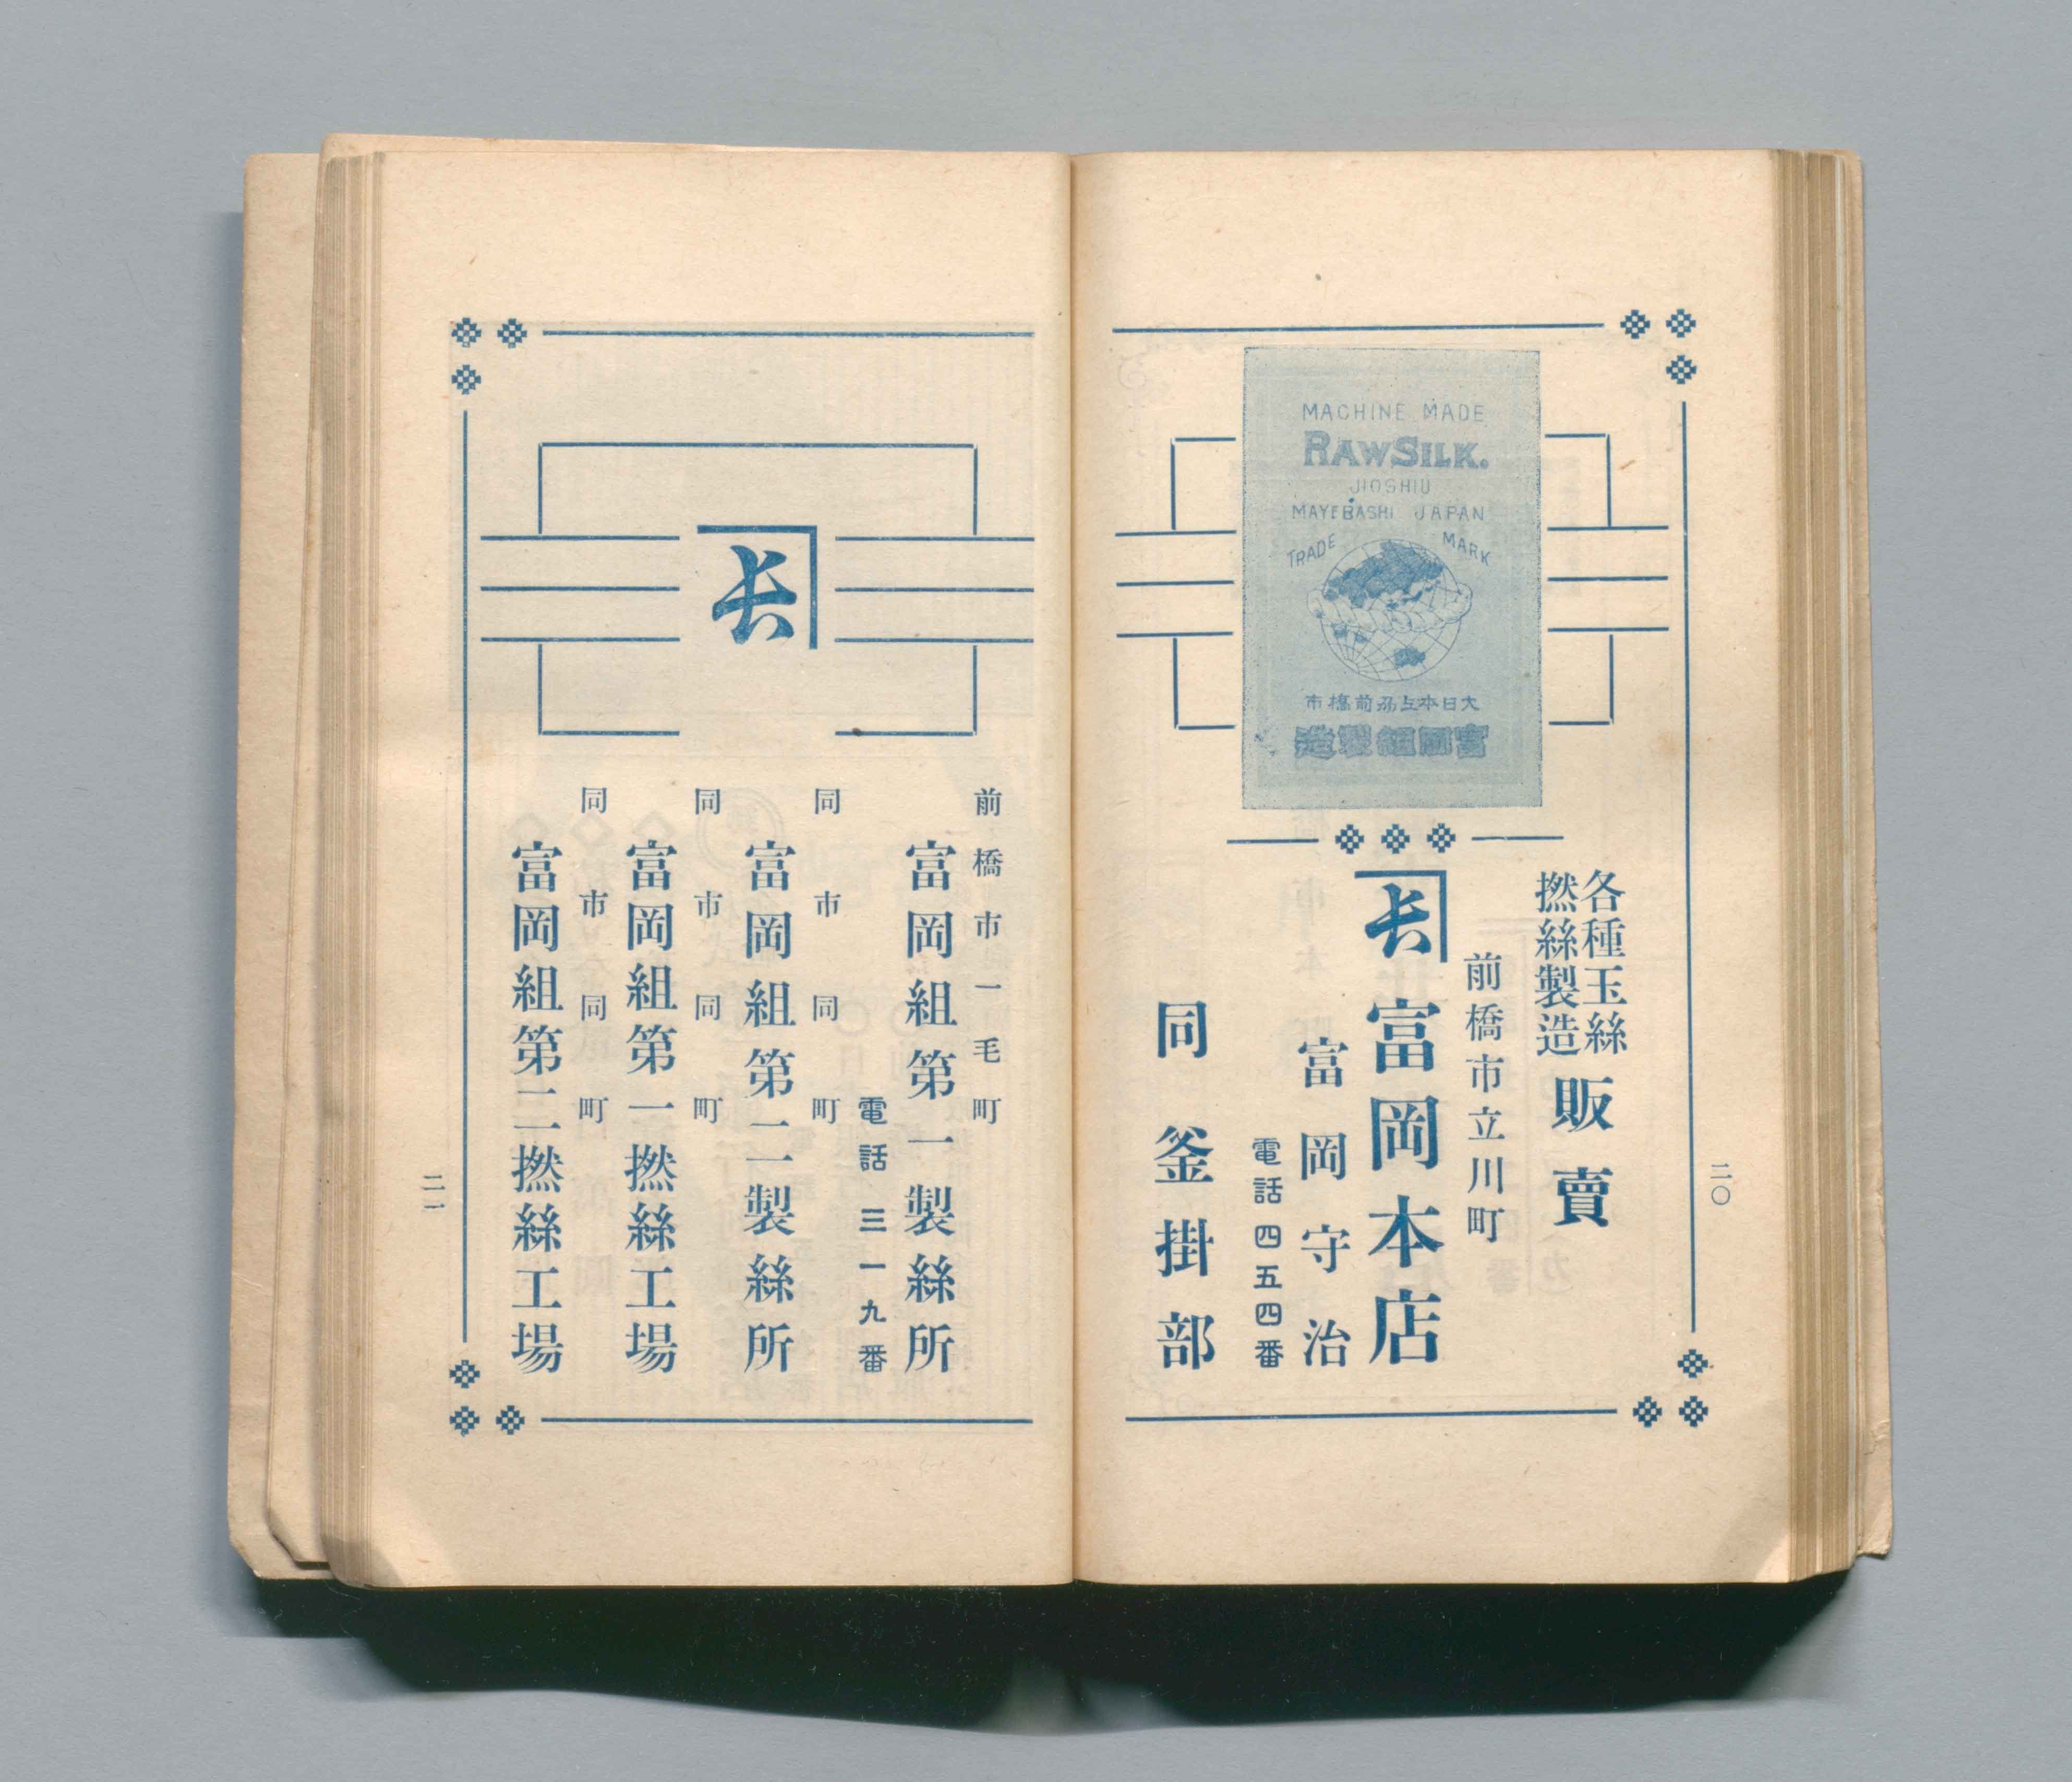 MACHINE MADE
RAW SILK.
JIOSHIU
MAYEBASHI JAPAN
TRADE MARK
大日本上州前橋市
富岡組製造
各種玉絲
撚絲製造
販賣
前橋市立川町
長
富岡本店
富岡守治
電話四五四番
同釜掛部
二〇
長
前橋市一毛町
富岡組第一製絲所
電話三一九番
同市同町
富岡組第二製絲所
同市同町
富岡組第一撚絲工場
同市同町
富岡組第二撚絲工場
二一